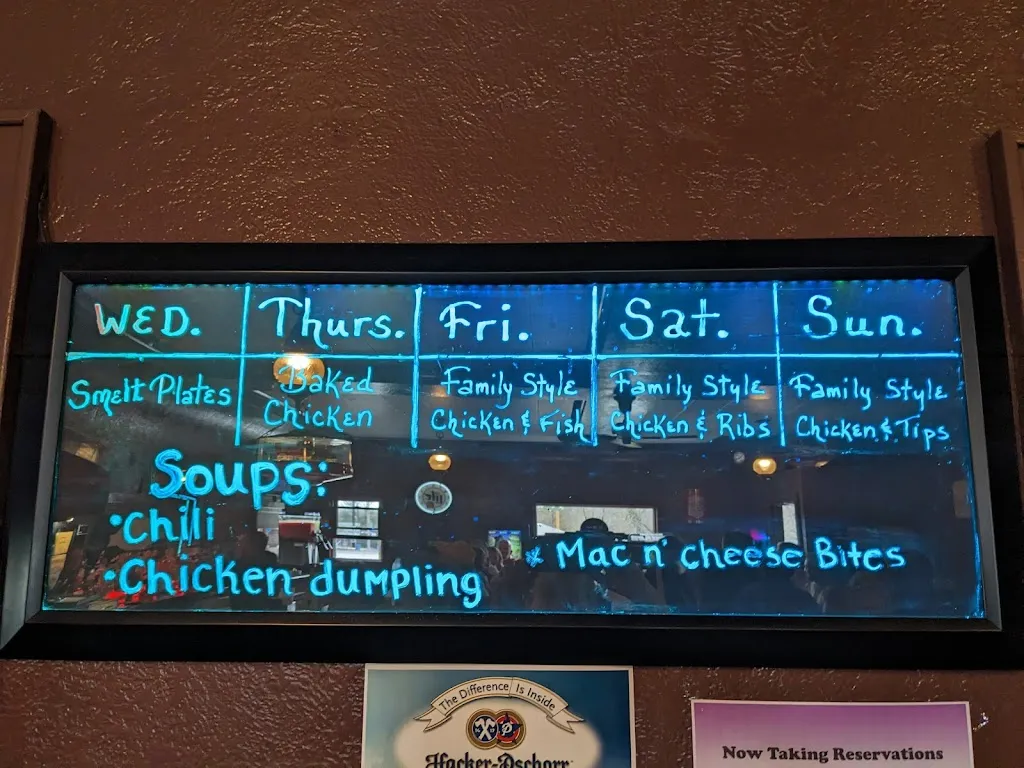 WED.
Thurs.
Fri.
Sat.
Sun.
Smelt Plates
Baked
Chicken
Family Style
Chicken & Fish
Family Style
Chicken & Ribs
Family Style
Chicken & Tips
Soups:
•Chili
•Chicken dumpling
* Mac n' cheese Bites
The Difference Is Inside
Hacker-Pschorr
Now Taking Reservations